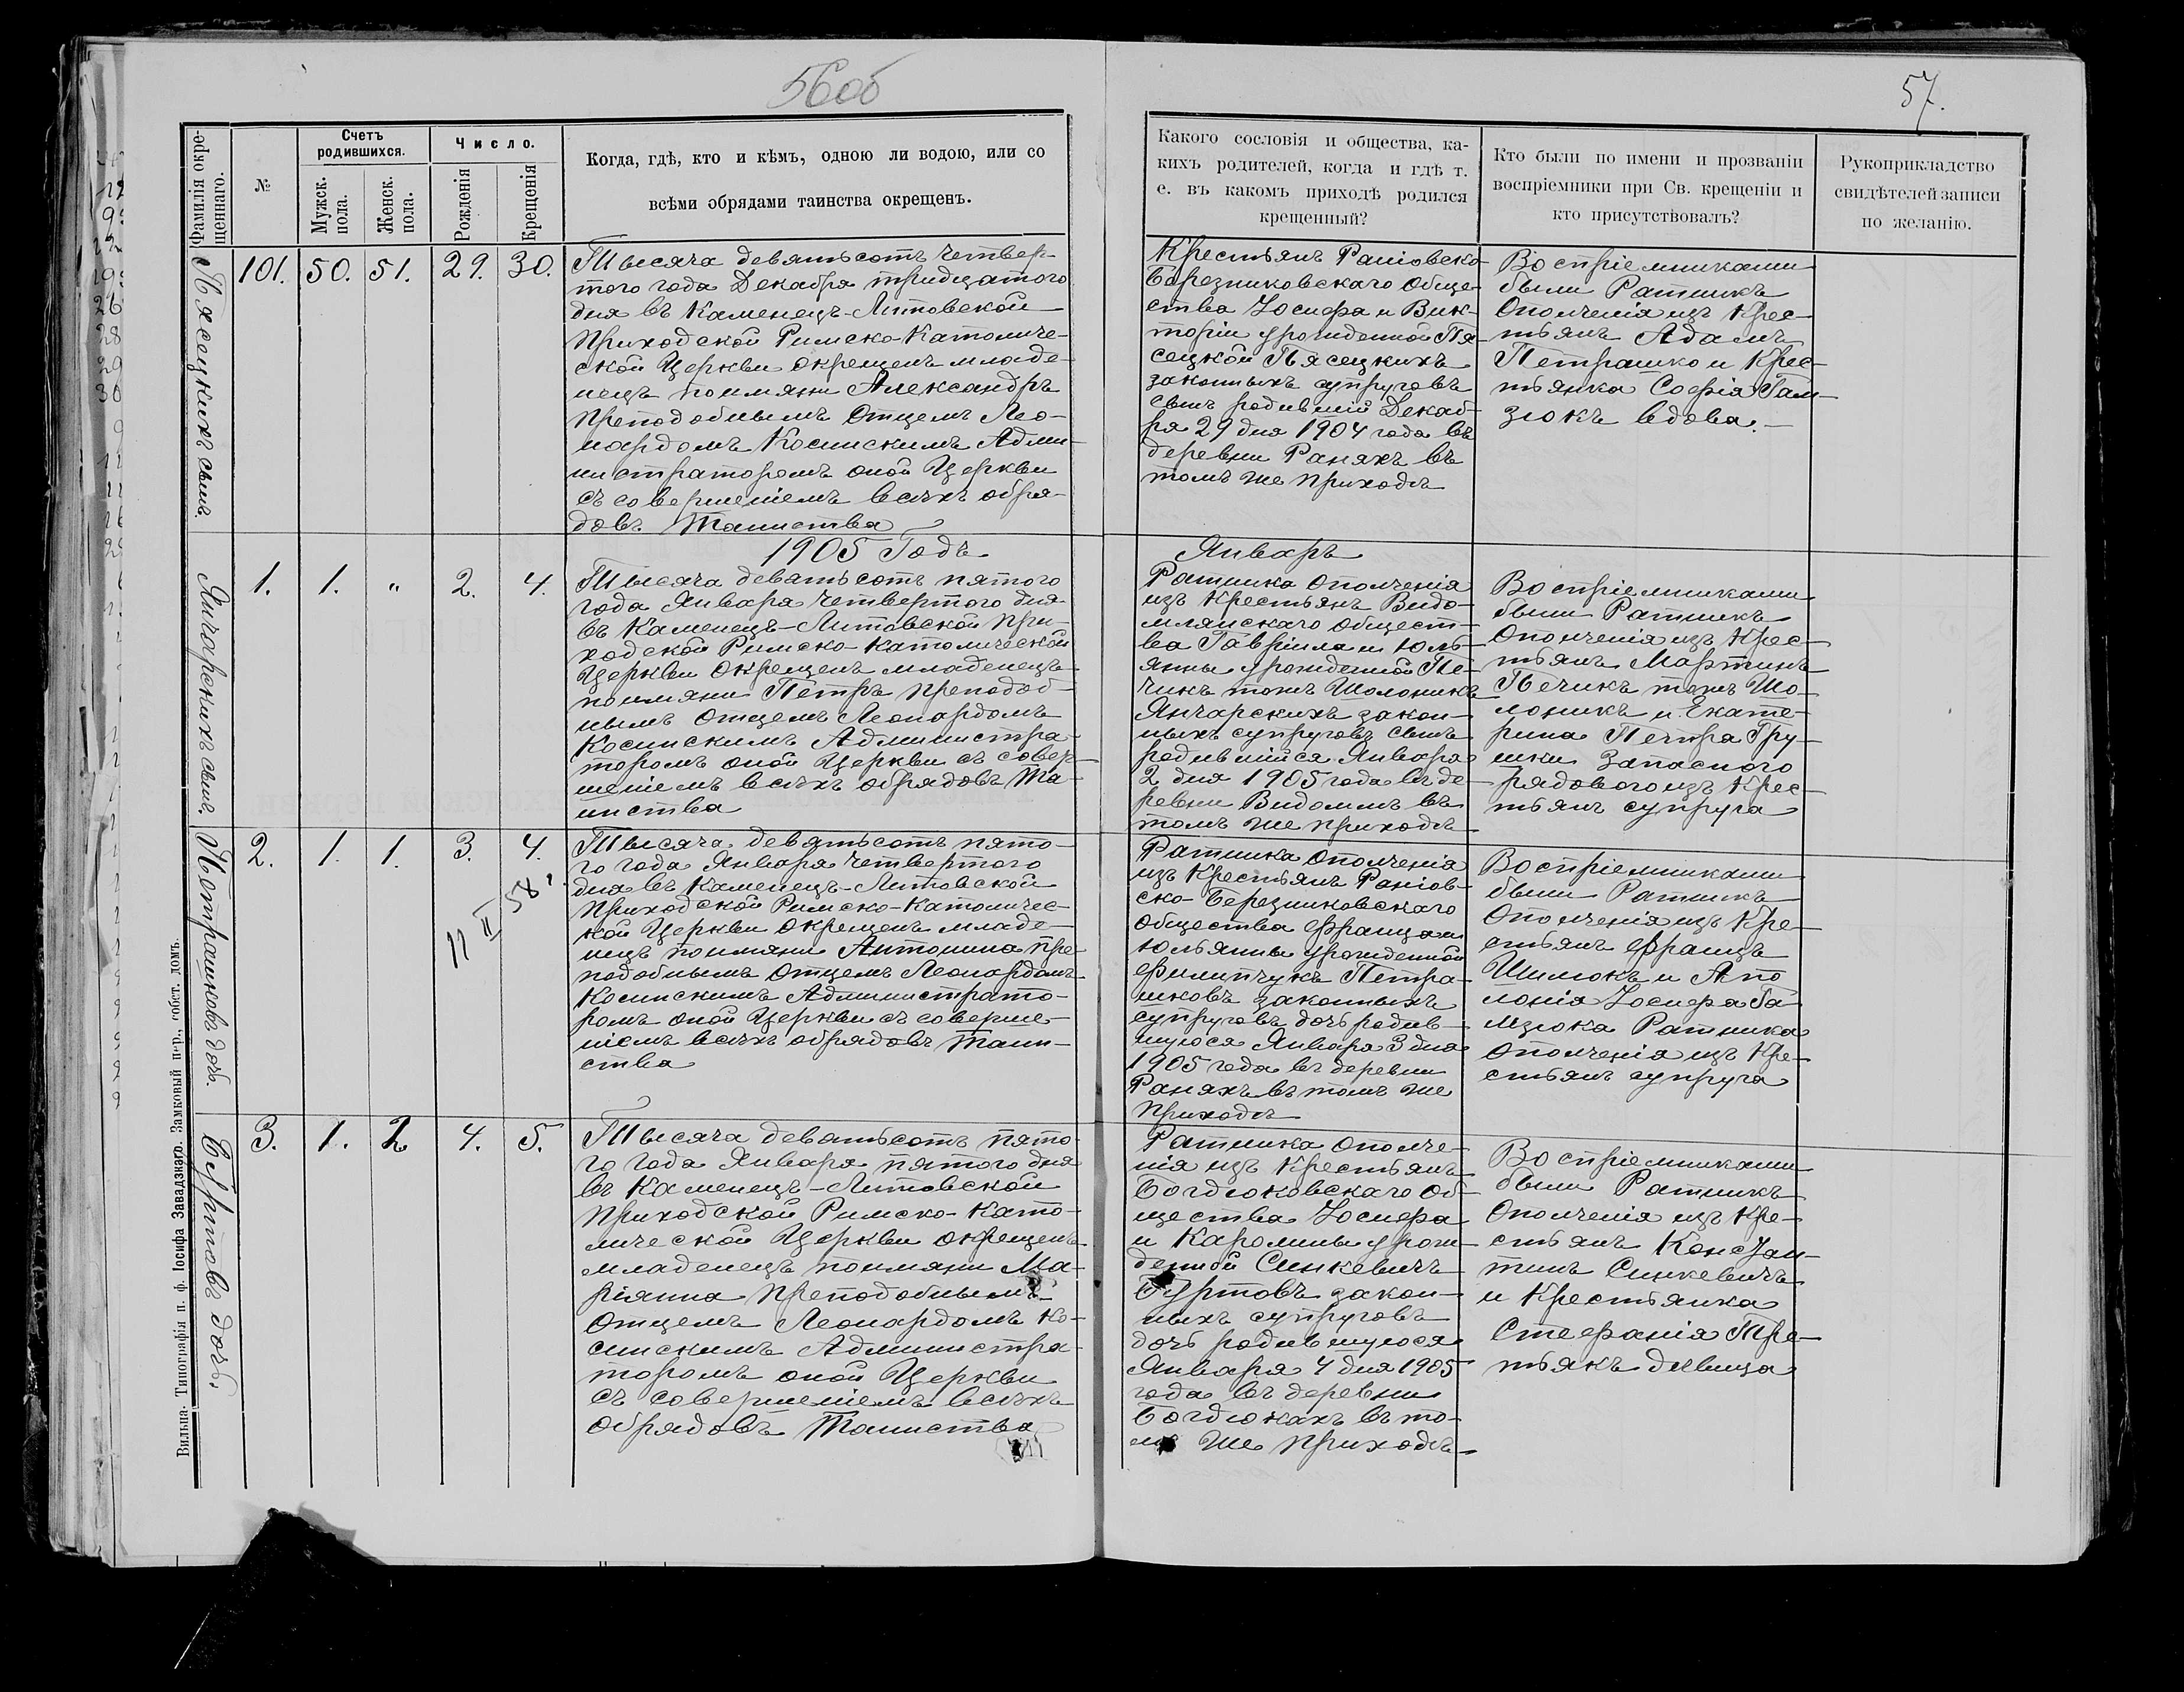 56об
57.
Фамилія окре-
щеннаго.
№
Счетъ
родившихся.
Мужск.
пола.
Женск.
пола.
Число.
Рожденія
Крещенія
Когда, гдѣ, кто и кѣмъ, одною ли водою, или со
всѣми обрядами таинства окрещенъ.
Какого сословія и общества, ка-
кихъ родителей, когда и гдѣ т.
е. въ какомъ приходѣ родился
крещенный?
Кто были по имени и прозваніи
воспріемники при Св. крещеніи и
кто присутствовалъ?
Рукоприкладство
свидѣтелей записи
по желанію.
Пясецкихъ сынъ.
101. 50. 51. 29. 30.
Тысяча девятьсотъ четвер-
того года Декабря тридцатого
дня въ Каменецъ-Литовской
Приходской Римско-Католиче-
ской Церкви окрещенъ младе-
нецъ поимяни Александръ
Преподобнымъ Отцемъ Лео-
нардомъ Косинскимъ Адми-
нистраторомъ оной Церкви
съ совершеніемъ всѣхъ обря-
довъ Таинства
Крестьянъ Ратовско-
Березниковскаго Обще-
ства Іосифа и Вик-
торіи урожденной Пя-
сецкой Пясецкихъ
законныхъ супруговъ
сынъ родившій Декаб-
ря 29 дня 1904 года въ
деревни Раняхъ въ
томъ же приходѣ
Воспріемниками
были Ратникъ
Ополченія изъ Крес-
тьянъ Адамъ
Петрашко и Крес-
тьянка Софія Гам-
зюкъ вдова.
1905 Годъ
Январь
Янчарскихъ сынъ.
1. 1. " 2. 4.
Тысяча девятьсотъ пятого
года Января четвертого дня
въ Каменецъ-Литовской При-
ходской Римско-Католической
Церкви окрещенъ младенецъ
поимяни Петръ Преподоб-
нымъ Отцемъ Леонардомъ
Косинскимъ Администра-
торомъ оной Церкви съ совер-
шеніемъ всѣхъ обрядовъ Та-
инства
Ратника Ополченія
изъ Крестьянъ Видо-
млянскаго Общест-
ва Гавріила и Юль-
янны урожденной Пе-
чикъ тожъ Шолоникъ
Янчарскихъ закон-
ныхъ супруговъ сынъ
родившійся Января
2 дня 1905 года въ де-
ревни Видомль въ
томъ же приходѣ
Воспріемниками
были Ратникъ
Ополченія изъ Крес-
тьянъ Мартинъ
Печикъ тожъ Шо-
лоникъ и Екате-
рина Петра Гру-
шки Запасного
рядового изъ Крес-
тьянъ супруга
Петрашковъ дочь.
2. 1. 1. 3. 4.
11 II 58 г.
Тысяча девятьсотъ пято-
го года Января четвертого
дня въ Каменецъ-Литовской
Приходской Римско-Католичес-
кой Церкви окрещенъ младе-
нецъ поимяни Антонина Пре-
подобнымъ Отцемъ Леонардомъ
Косинскимъ Администрато-
ромъ оной Церкви съ соверше-
ніемъ всѣхъ обрядовъ Таин-
ства
Ратника Ополченія
изъ Крестьянъ Ратов-
ско-Березниковскаго
Общества Франца и
Юльянны урожденной
Филипчукъ Петра-
шковъ законныхъ
супруговъ дочь родив-
шуюся Января 3 дня
1905 года въ деревни
Раняхъ въ томъ же
приходѣ
Воспріемниками
были Ратникъ
Ополченія изъ Кре-
стьянъ Францъ
Шимокъ и Апо
лонія Іосифа Га-
мзюка Ратника
Ополченія изъ Кре-
стьянъ супруга
Буртовъ дочь.
3. 1. 2 4. 5.
Тысяча девятьсотъ пято-
го года Января пятого дня
въ Каменецъ-Литовской
Приходской Римско-Като-
лической Церкви окрещенъ
младенецъ поимяни Ма-
ріянна Преподобнымъ
Отцемъ Леонардомъ Ко-
синскимъ Администра-
торомъ оной Церкви
съ совершеніемъ всѣхъ
обрядовъ Таинства
Ратника Ополче-
нія изъ Крестьянъ
Богдюковскаго Об-
щества Іосифа
и Каролины урож-
денной Синкевичъ
Буртовъ закон-
ныхъ супруговъ
дочь родившуюся
Января 4 дня 1905
года въ деревни
Богдюкахъ въ то-
мъ же приходѣ
Воспріемниками
были Ратникъ
Ополченія изъ Кре-
стьянъ Констан-
тинъ Синкевичъ
и Крестьянка
Стефанія Тре-
тьякъ дѣвица
Вильна. Типографія п. ф. Іосифа Завадзкаго. Замковый пер., собст. домъ.